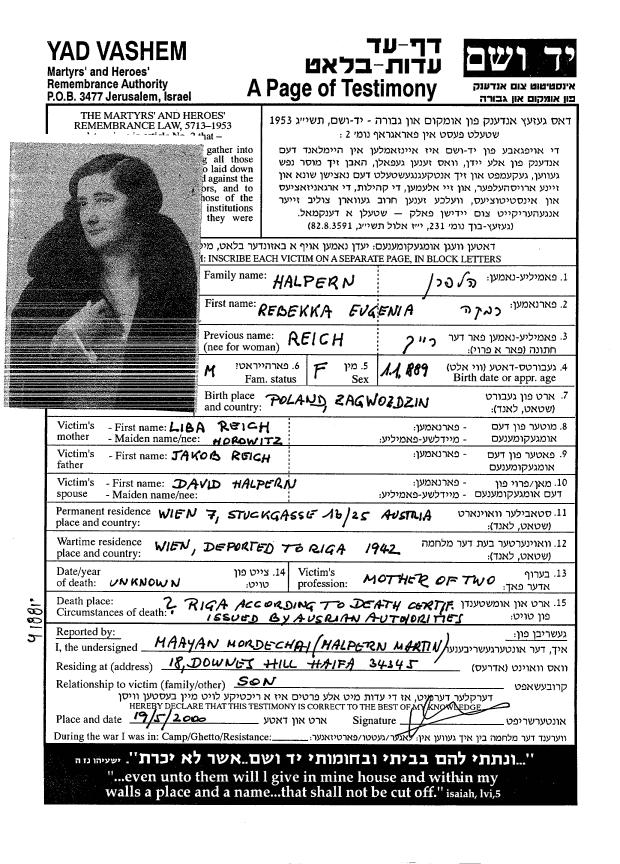 YAD VASHEM
Martyrs' and Heroes'
Remembrance Authority
P.O.B. 3477 Jerusalem, Israel
דף-עד
עדות-בלאט
A Page of Testimony
יד ושם
אינסטיטוט צום אנדענק
פון אומקום און גבורה
THE MARTYRS' AND HEROES'
REMEMBRANCE LAW, 5713–1953
gather into
all those
laid down
against the
and to
those of the
institutions
they were
דאס געזעץ אנדענק פון אומקום און גבורה - יד-ושם, תשי"ג 1953
שטעלט פעסט אין פאראגראף נומ' 2 :
די אויפגאבע פון יד-ושם איז איינזאמלען אין היימלאנד דעם
אנדענק פון אלע יידן, וואס זענען געפאלן, האבן זיך מוסר נפש
געווען, געקעמפט און זיך אנטקעגנגעשטעלט דעם נאצישן שונא און
זיינע ארויסהעלפער, און זיי אלעמען, די קהילות, די ארגאניזאציעס
און אינסטיטוציעס, וועלכע זענען חרוב געווארן צוליב זייער
אנגעהעריקייט צום יידישן פאלק — שטעלן א דענקמאל.
(געזעץ-בוך נומ' 231, י"ז אלול תשי"ג, 82.8.3591)
דאטען וועגן אומגעקומענעם: יעדן נאמען אויף א באזונדער בלאט,
INSCRIBE EACH VICTIM ON A SEPARATE PAGE, IN BLOCK LETTERS
Family name: HALPERN הלפרן 1. פאמיליע-נאמען:
First name: REBEKKA EUGENIA רבקה 2. פארנאמען:
Previous name: (nee for woman) REICH רייך 3. פאמיליע-נאמען פאר דער חתונה (פאר א פרוי):
M 6. פארהייראטי? Fam. status F 5. מין Sex 1.1.889 4. געבורטס-דאטע (ווי אלט) Birth date or appr. age
Birth place and country: POLAND, ZAGWOŹDZIN 7. ארט פון געבורט (שטאט, לאנד):
Victim's mother - First name: LIBA REICH - פארנאמען: 8. מוטער פון דעם אומגעקומענעם
- Maiden name/nee: HOROWITZ - מיידלשע-פאמיליע:
Victim's father - First name: JAKOB REICH - פארנאמען: 9. פאטער פון דעם אומגעקומענעם
Victim's spouse - First name: DAVID HALPERN - פארנאמען: 10. מאן/פרוי פון דעם אומגעקומענעם
- Maiden name/nee: - מיידלשע-פאמיליע:
Permanent residence place and country: WIEN 7, STUCKGASSE 1b/25 AUSTRIA 11. סטאבילער וואוינארט (שטאט, לאנד):
Wartime residence place and country: WIEN, DEPORTED TO RIGA 1942 12. וואוינערטער בעת דער מלחמה (שטאט, לאנד):
Date/year of death: UNKNOWN 14. צייט פון טויט: Victim's profession: MOTHER OF TWO 13. בערוף אדער פאך:
Death place: Circumstances of death: ? RIGA ACCORDING TO DEATH CERTIF. 15. ארט און אומשטענדן פון טויט:
ISSUED BY AUSRIAN AUTHORITIES
Reported by: געשריבן פון:
I, the undersigned MAAYAN MORDECHAI (HALPERN MARTIN) איך, דער אונטערגעשריבענער
Residing at (address) 18, DOWNES HILL HAIFA 34345 וואס וואוינט (אדרעס)
Relationship to victim (family/other) SON קרובעשאפט
דערקלער דערמיט, אז די עדות מיט אלע פרטים איז א ריכטיקע לויט מיין בעסטען וויסן
HEREBY DECLARE THAT THIS TESTIMONY IS CORRECT TO THE BEST OF MY KNOWLEDGE.
Place and date 19/5/2000 ארט און דאטע Signature אונטערשריפט
During the war I was in: Camp/Ghetto/Resistance: ווערענד דער מלחמה בין איך געווען אין: לאגער/געטא/פארטיזאנער:
"...ונתתי להם בביתי ובחומותי יד ושם...אשר לא יכרת". ישעיהו נז ה
"...even unto them will I give in mine house and within my
walls a place and a name...that shall not be cut off." isaiah, lvi,5